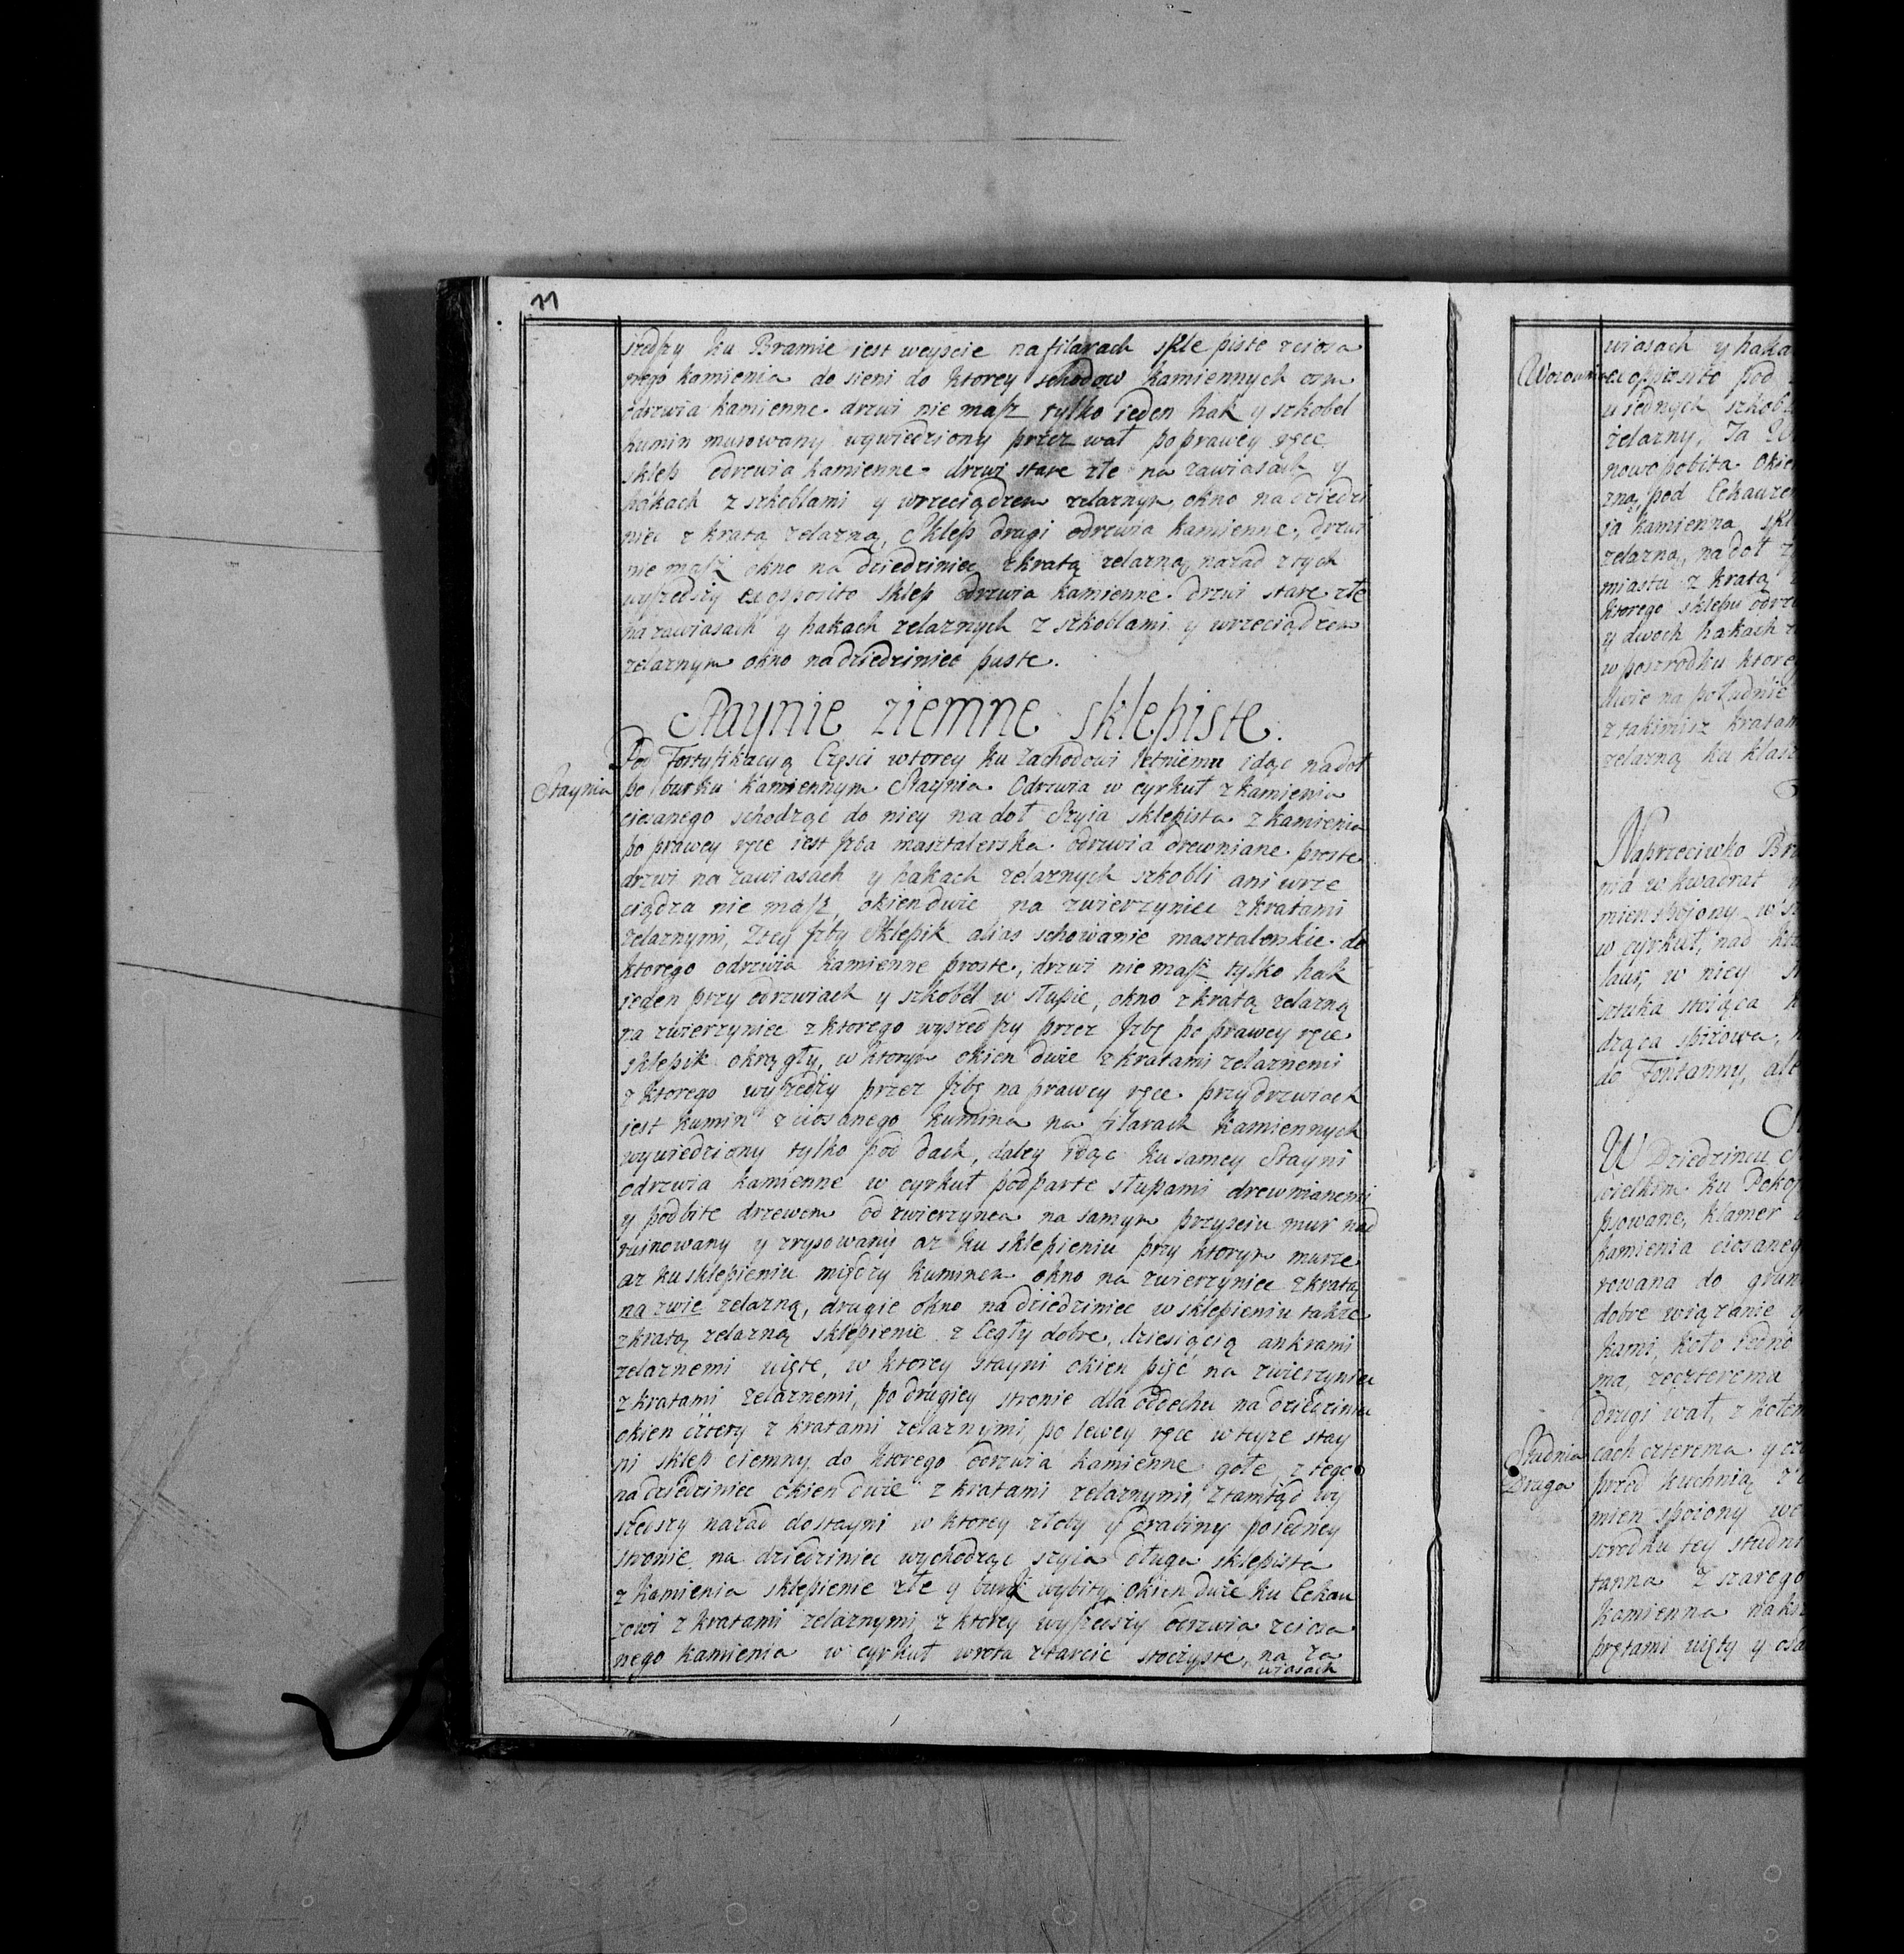 11
szedszy ku Bramie iest weyscie na filarach skle piste zciosa
nego kamienia do sieni do ktorey schodow kamiennych osm
odrzwia kamienne. drzwi nie masz tylko ieden hak y szkobel
kumin murowany wywiedziony przez wał po prawey ręce
sklep odrzwia kamienne drzwi stare złe na zawiasach y
hakach z szkoblami y wrzeciądzem zelaznym, okno na dziedzi
niec z kratą zelazną, Sklep drugi odrzwia kamienne, drzwi
nie masz okno na dziedziniec z kratą zelazną, nazad z tych
wyszedszy ex opposito sklep odrzwia kamienne. drzwi stare złe
na zawiasach y hakach zelaznych z szkoblami y wrzeciądzem
zelaznym okno na dziedziniec puste.
Staynie ziemne sklepiste.
Pod Fortyfikacyą Częsci wtorey ku Zachodowi letniemu idąc na doł
Staynia
po burku kamiennym Staynia. Odrzwia w cyrkuł z kamienia
ciosanego schodząc do niey na doł Szyia sklepista z kamienia
po prawey ręce iest Jzba masztalerska. odrzwia drewniane proste
drzwi na zawiasach y hakach zelaznych szkobli ani wrze
ciądza nie masz, okien dwie na zwierzyniec z kratami
zelaznymi, Ztey Jzby Sklepik alias schowanie masztalerskie do
ktorego odrzwia kamienne proste, drzwi nie masz tylko hak
ieden przy odrzwiach y szkobel w słupie, okno z kratą zelazną
na zwierzyniec z ktorego wyszedszy przez Jzbę po prawey ręce
sklepik okrągły, w ktorym okien dwie z kratami zelaznemi
z ktorego wyszedszy przez Jzbę na prawey ręce przy drzwiach
iest kumin z ciosanego kumina na filarach kamiennych
wywiedziony tylko pod dach, daley idąc ku samey Stayni
odrzwia kamienne w cyrkuł podparte słupami drewnianemi
y podbite drzewem od zwierzynca na samym przysciu mur nad
ruinowany y zrysowany az ku sklepieniu przy ktorym murze
az ku sklepieniu między kuminem okno na zwierzyniec z kratą
na zwie zelazną, drugie okno na dziedziniec w sklepieniu takze
z kratą zelazną sklepienie z Cegły dobre, dziesiącią ankrami
zelaznemi uięte, w ktorey stayni okien pięć na zwierzyniec
z kratami zelaznemi, po drugiey stronie dla oddechu na dziedziniec
okien cztery z kratami zelaznymi, po lewey ręce w teyze stay
ni sklep ciemny do ktorego odrzwia kamienne gołe z tego
na dziedziniec okien dwie z kratami zelaznymi, ztamtąd wy
szedszy nazad do stayni w ktorey złoby y drabiny po iedney
stronie na dziedziniec wychodząc szyia długa sklepista
z kamienia sklepienie złe y buruk wybity okien dwie ku Cekau
zowi z kratami zelaznymi, z ktorey wyszedszy odrzwia zciosa
nego kamienia w cyrkuł wrota ztarcic stoczyste, na za
wiasach
wiasach y haka
Wozownia
ex opposito pod
u iednych szkob
żelazny, Ta
nowo pobita okien
zną, pod Cekauzem
ia kamienna skl
zelazną, na doł
miastu z kratą
ktorego sklepu odrz
y dwoch hakach
w poszrodku ktorey
dwie na południe
z takimisz kratam
zelazną ku klasz
Naprzeciwko Br
nia w kwadrat
mien spoiony w
w cyrkuł, nad
w niey
sztuka
dząca
do Fontanny,
W Dziedzincu
wielkim ku Poko
psowane, klamer
kamienia ciosaneg
rowana do grun
dobre wiązanie
kami, koło iedno
ma zeczterema
drugi wał, z kołem
Studnia
Druga
cach czterema y
przed kuchnią
mien spoiony we
srodku tey studni
tanna z szarego
kamienna na
prętami uięty y